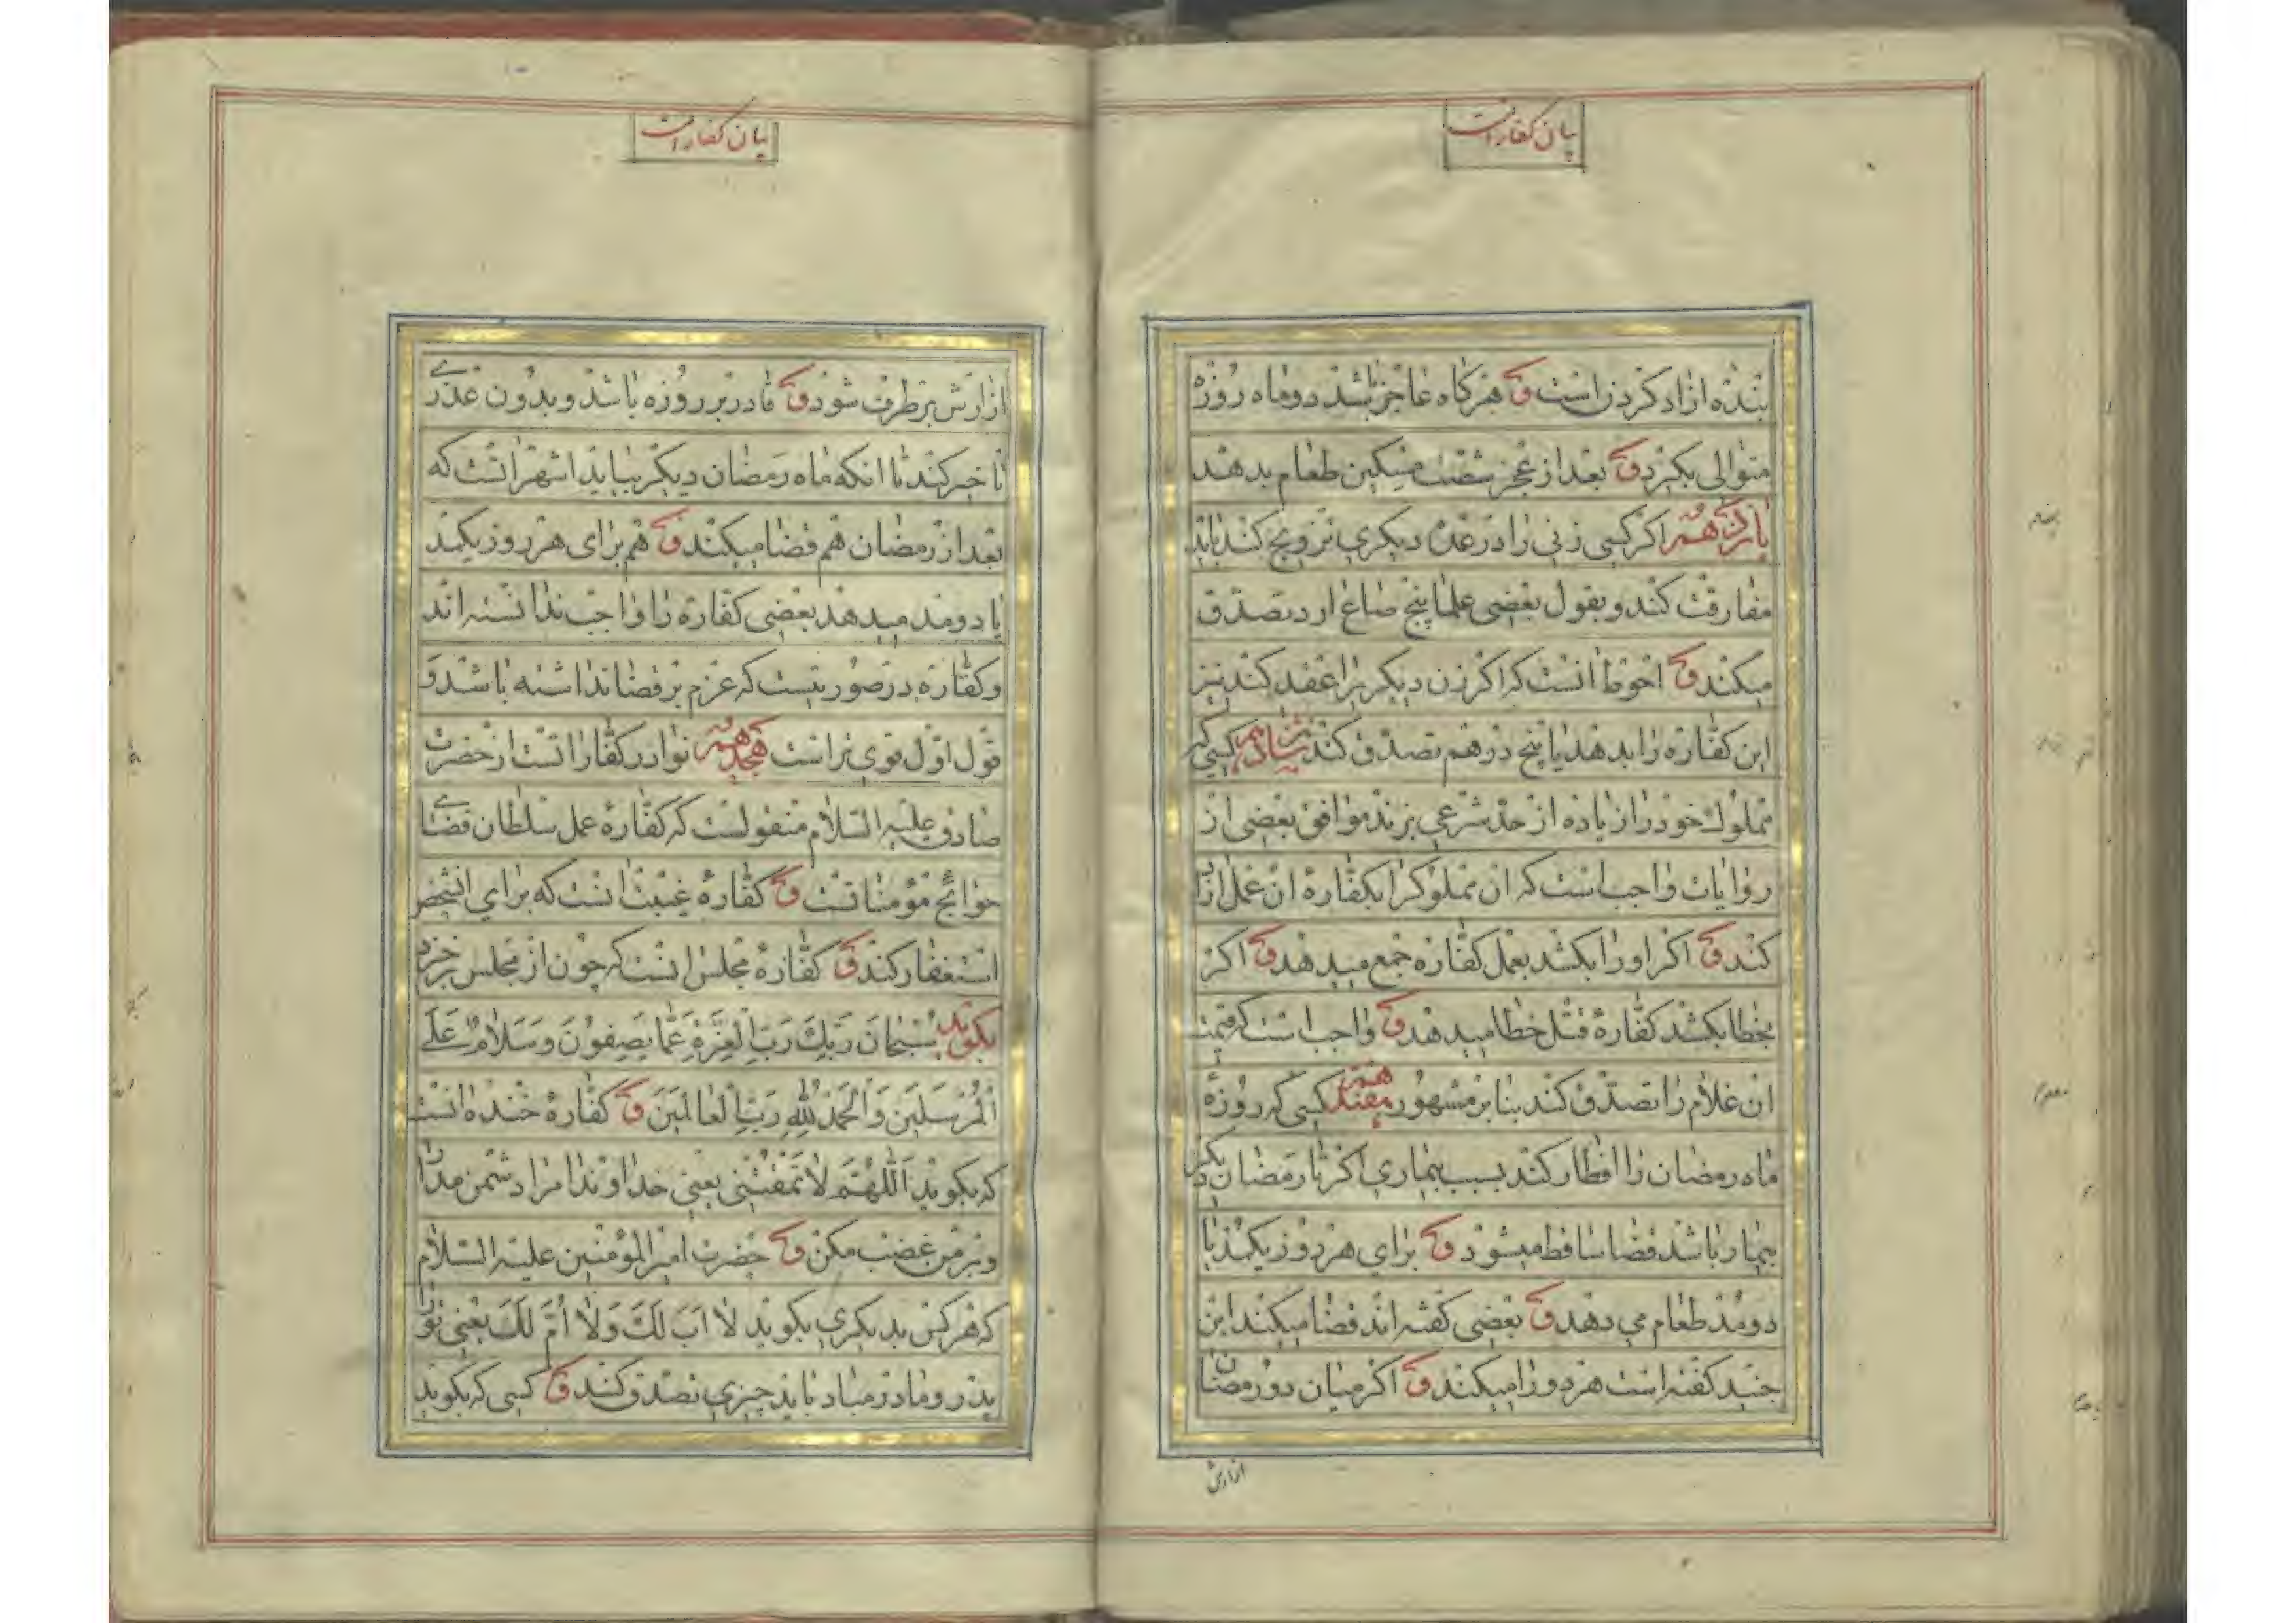 بیان کفارات
بنده ازاد کردن است و هرکاه عاجز باشد دو ماه روزه
متوالی بکیرد و بعد از عجز شصت مسکین طعام بدهند
پانزدهم اکر کسی زنی را در عده دیکری تزویج کند باید
مفارقت کند و بقول بعضی علما پنج صاع ارد تصدق
میکند و احوط انست که اکر زن دیکریرا عقد کند نیز
این کفاره را بدهد یا پنج درهم تصدق کند شانزدهم کسی که
مملوک خود را زیاده از حد شرعی بزند موافق بعضی از
روایات واجب است که ان مملوکرا بکفاره ان عمل ازاد
کند و اکر او را بکشد بعمل کفاره جمع میدهد و اکر
بخطا بکشد کفاره قتل خطا میدهد و واجب است که قیمت
ان غلام را تصدق کند بنا بر مشهور هفدهم کسی که روزه
ماه رمضان را افطار کند بسبب بیماری اکر تا رمضان دیکر
بیمار باشد قضا ساقط میشود و برای هر روز یکمد یا
دو مد طعام می دهد و بعضی کفته اند قضا میکند ابن
جنید کفته است هر دو را میکند و اکر میان دو رمضان
ازارش
بیان کفارات
ازارش برطرف شود و قادر بر روزه باشد و بدون عذری
تاخیر کند تا انکه ماه رمضان دیکر بیاید اشهر انست که
بعد از رمضان هم قضا میکند و هم برای هر روز یکمد
یا دو مد میدهد بعضی کفاره را واجب ندانسته اند
و کفاره در صورتیست که عزم بر قضا نداشته باشد و
قول اول قوی تر است هجدهم نوادر کفاراتست از حضرت
صادق علیه السلام منقولست که کفارهٔ عمل سلطان قضای
حوائج مؤمنانست و کفارهٔ غیبت انست که برای انشخص
استغفار کند و کفارهٔ مجلس انست که چون از مجلس برخیزد
بکوید سُبْحانَ رَبِّكَ رَبِّ الْعِزَّةِ عَمّا یَصِفُونَ وَسَلامٌ عَلَی
الْمُرْسَلینَ وَالْحَمْدُ لِلّٰهِ رَبِّ الْعالَمینَ و کفارهٔ خنده انست
که بکوید اَللّٰهُمَّ لاتَمْقُتْنی یعنی خداوندا مرا دشمن مدار
و بر من غضب مکن و حضرت امیر المؤمنین علیه السلام
که هر کس بدیکری بکوید لا اَبَ لَكَ وَلا اُمَّ لَكَ یعنی تو را
پدر و مادر مباد باید چیزی تصدق کند و کسی که بکوید